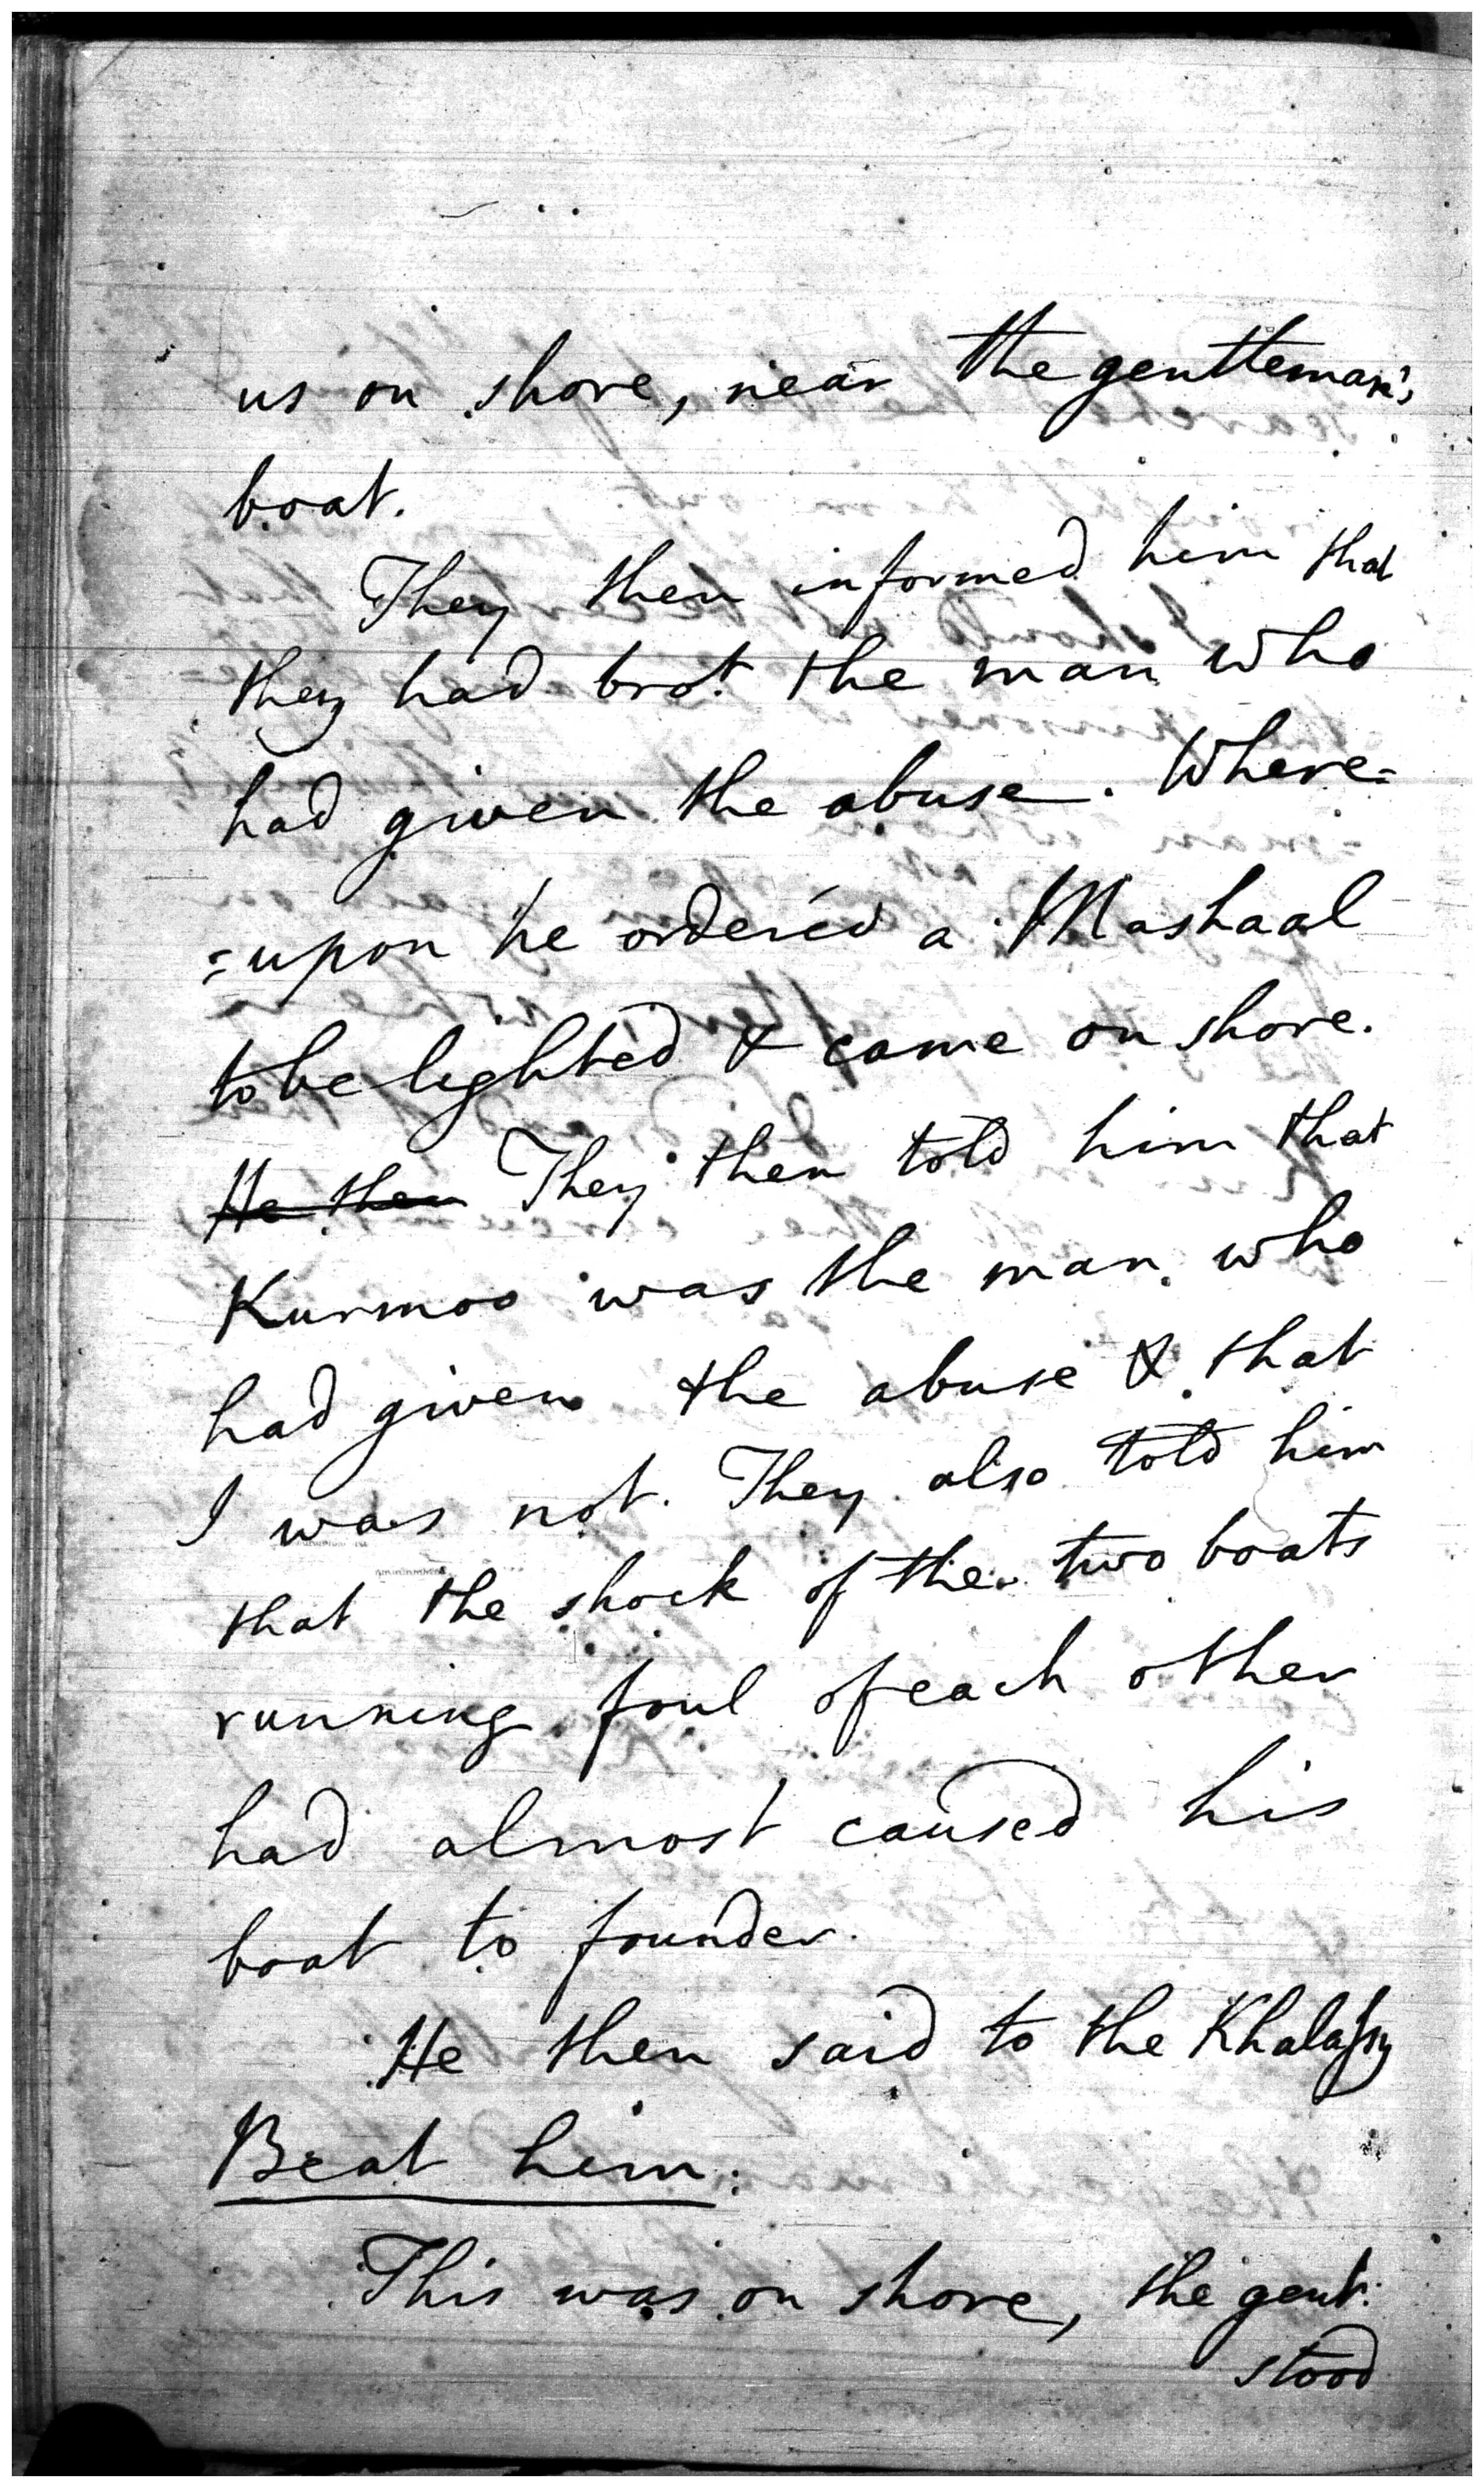 us on shore, near the gentleman's
boat.
They then informed him that
they had bro.t the man who
had given the abuse. Where=
=upon he ordered a Mashaal
to be lighted & came on shore.
He then They then told him that
Kurmoo was the man who
had given the abuse & that
I was not. They also told him
that the shock of the two boats
running foul of each other
had almost caused his
boat to founder.
He then said to the Khalassy
Beat him.
This was on shore, the gent:
stood